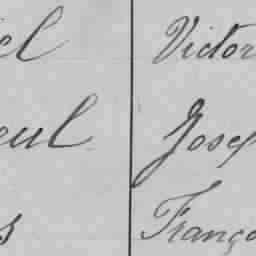 el Victor
eul Josep
s Franço